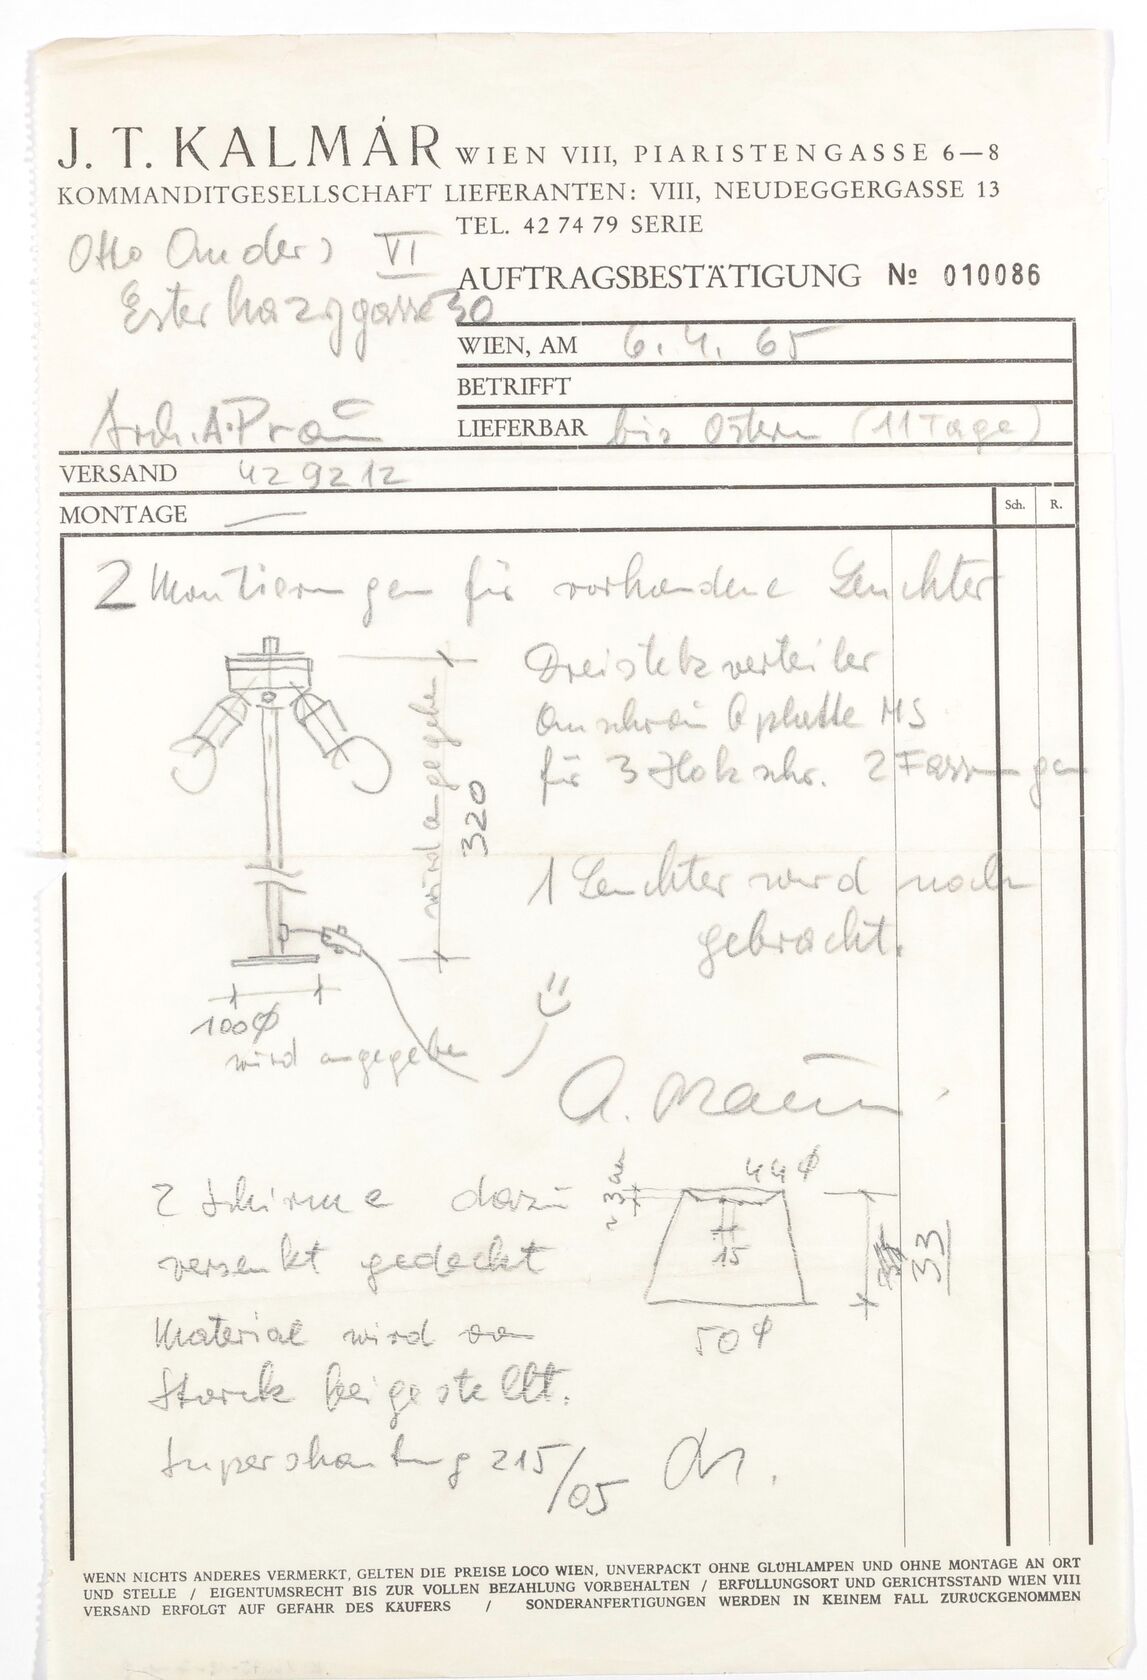 J. T. KALMÁR WIEN VIII, PIARISTENGASSE 6—8
KOMMANDITGESELLSCHAFT LIEFERANTEN: VIII, NEUDEGGERGASSE 13
TEL. 42 74 79 SERIE
Otto Anders VI
Esterhazygasse 30
AUFTRAGSBESTÄTIGUNG № 010086
WIEN, AM 6. 4. 65
BETRIFFT
Arch. A. Praun
LIEFERBAR bis Ostern (11 Tage)
VERSAND 429212
MONTAGE —
Sch. R.
2 Montierungen für vorhandene Leuchter
Dreistelzverteiler
Anschraubplatte MS
für 3 Holzschr. 2 Fassungen
wird angegeben
320
1 Leuchter wird noch
gebracht.
100 ∅
wird angegeben
A. Praun
2 Schirme dazu
versenkt gedeckt
~ 3 cm
44 ∅
15
33
50 ∅
Material wird von
Storck beigestellt.
Supershantung 215/05
WENN NICHTS ANDERES VERMERKT, GELTEN DIE PREISE LOCO WIEN, UNVERPACKT OHNE GLÜHLAMPEN UND OHNE MONTAGE AN ORT
UND STELLE / EIGENTUMSRECHT BIS ZUR VOLLEN BEZAHLUNG VORBEHALTEN / ERFÜLLUNGSORT UND GERICHTSSTAND WIEN VIII
VERSAND ERFOLGT AUF GEFAHR DES KÄUFERS / SONDERANFERTIGUNGEN WERDEN IN KEINEM FALL ZURÜCKGENOMMEN